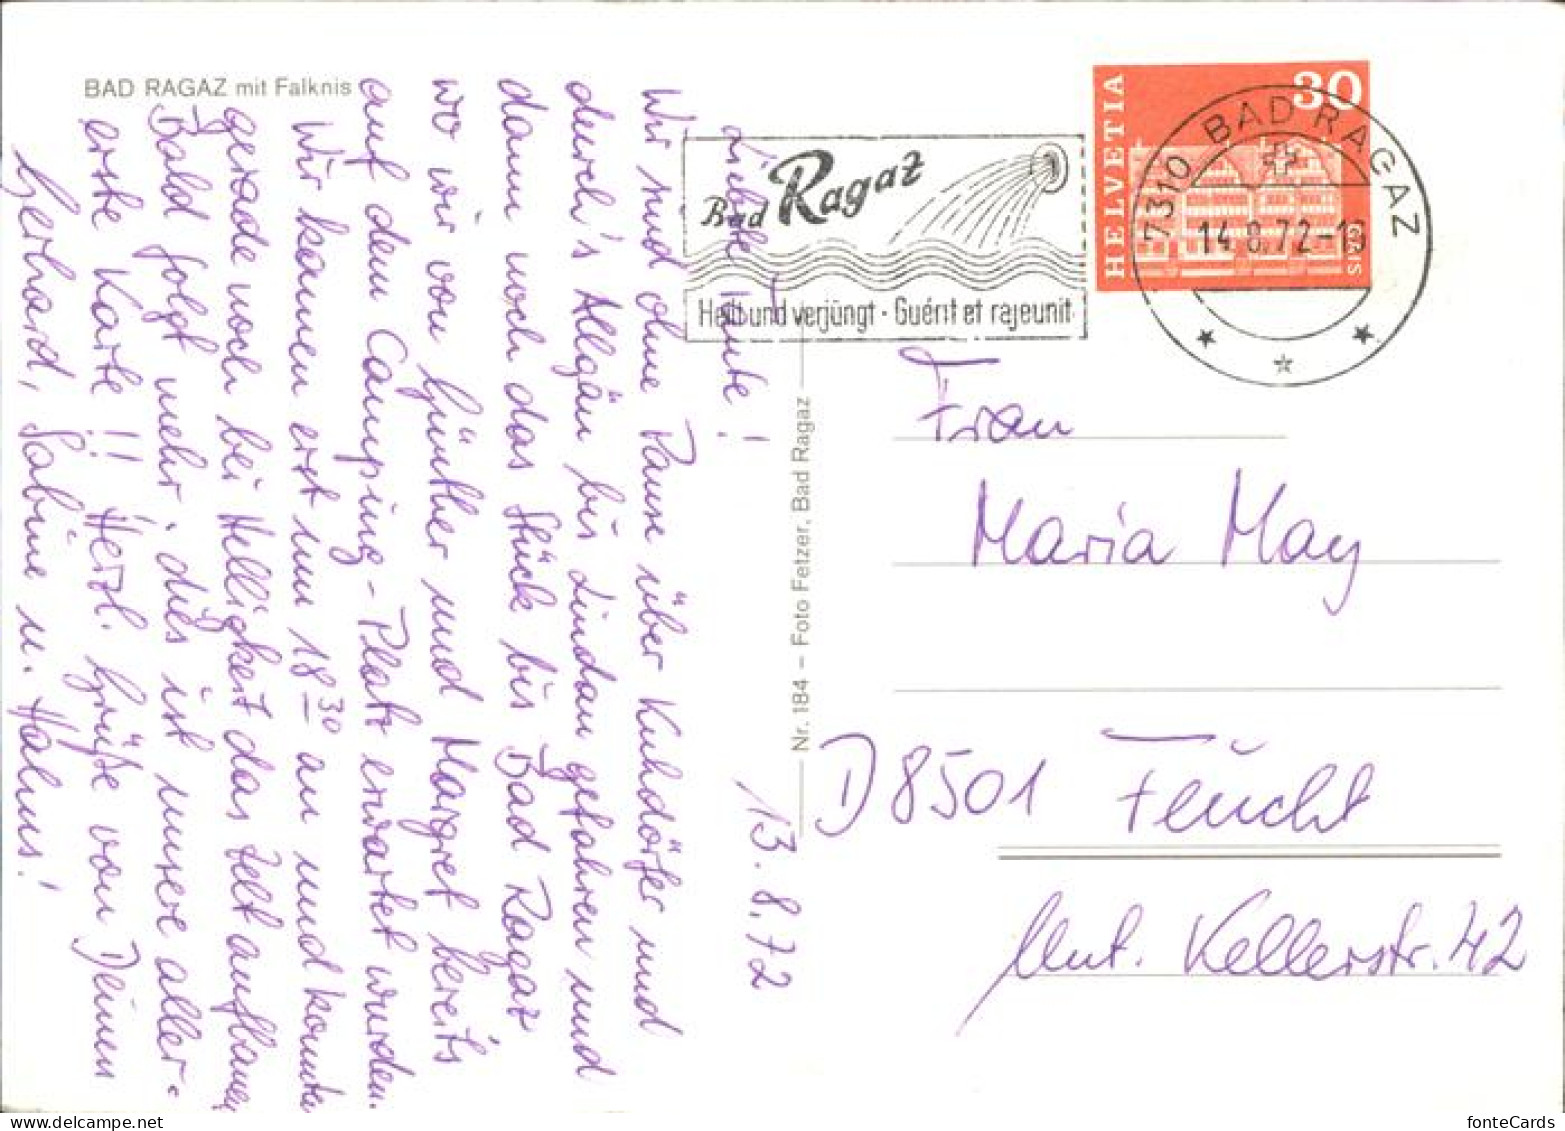 BAD RAGAZ mit Falknis
13. 8. 72
Liebste Tante!
Wir sind ohne Pause über Kuhdörfer und
durch's Allgäu bis Lindau gefahren und
dann noch das Stück bis Bad Ragaz
wo wir von Günther und Margret bereits
auf dem Camping-Platz erwartet wurden.
Wir kamen erst um 18 30 an und konnten
gerade noch bei Helligkeit das Zelt aufbauen
Bald folgt mehr, dies ist unsere aller-
erste Karte!! Herzl. Grüße von Deinen
Gerhard, Sabine u. Hanns!
Nr. 184 – Foto Fetzer, Bad Ragaz
Bad Ragaz
Heilt und verjüngt · Guérit et rajeunit
HELVETIA
30
7310 BAD RAGAZ
14.8.72-18
Frau
Maria May
D 8501 Feucht
Unt. Kellerstr. 42
fonteCards